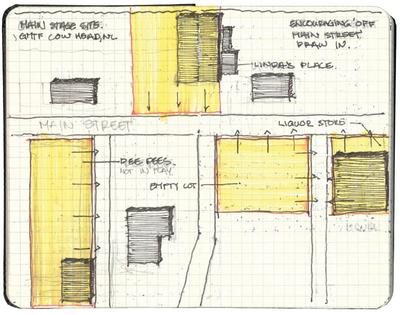 MAIN STAGE SITE.
GMTF COW HEAD, NL
ENCOURAGING 'OFF
MAIN STREET'
DRAW IN.
LINDA'S PLACE.
MAIN 'STREET'
LIQUOR STORE
DEE DEES.
NOT IN PLAY
EMPTY LOT